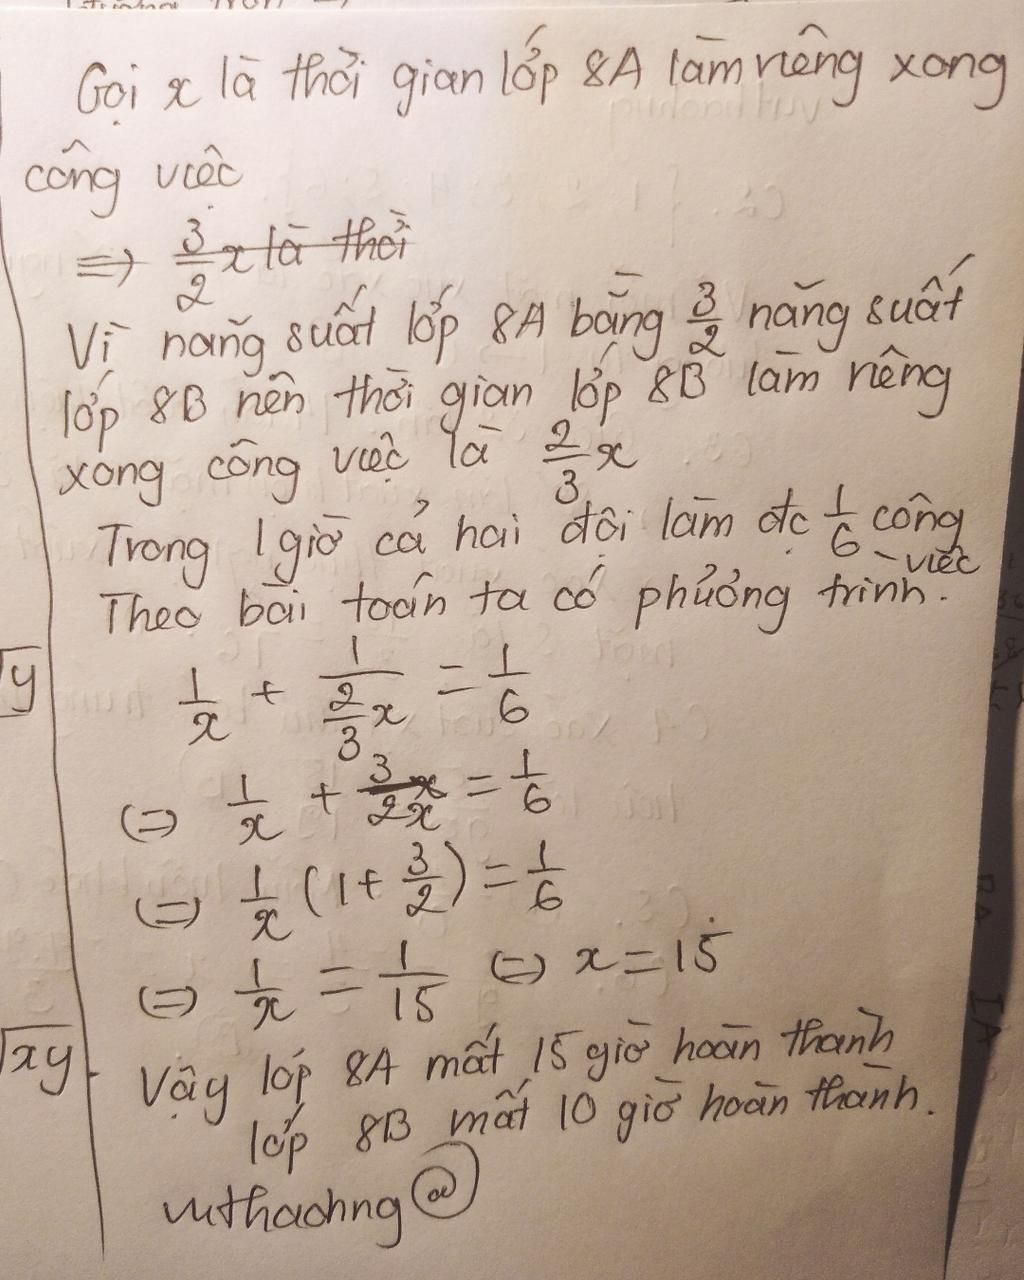 Gọi x là thời gian lớp 8A làm riêng xong
công việc
=> 3/2 x là thời
Vì năng suất lớp 8A bằng 3/2 năng suất
lớp 8B nên thời gian lớp 8B làm riêng
xong công việc là 2/3 x
Trong 1 giờ cả hai đội làm đc 1/6 công
việc
Theo bài toán ta có phương trình.
y
1/x + 1/(2/3 x) = 1/6
(=) 1/x + 3/2x = 1/6
(=) 1/x (1 + 3/2) = 1/6
(=) 1/x = 1/15 (=) x = 15
xy
Vậy lớp 8A mất 15 giờ hoàn thành
lớp 8B mất 10 giờ hoàn thành.